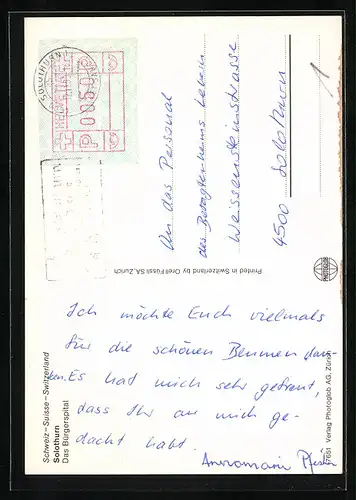 SOLOTHURN
P 0050
An das Personal
des Betagtenheims
Weissensteinstrasse
4500 Solothurn
1
Printed in Switzerland by Orell Füssli SA, Zürich
Schweiz–Suisse–Switzerland
Solothurn
Das Bürgerspital
7651 Verlag Photoglob AG, Zürich
Ich möchte Euch vielmals
für die schönen Blumen dan-
ken. Es hat mich sehr gefreut,
dass Ihr an mich ge-
dacht habt.
Annemarie Pfister